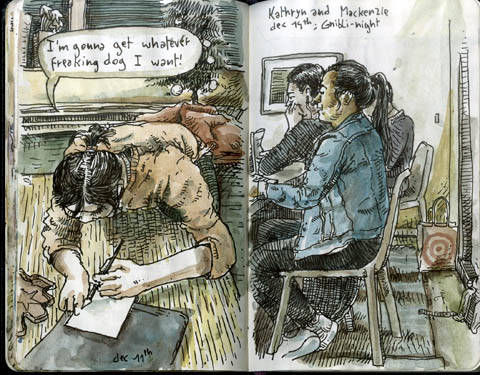 I'm gonna get whatever
freaking dog I want!
dec 19th
Kathryn and Mackenzie
dec 19th; Ghibli-night